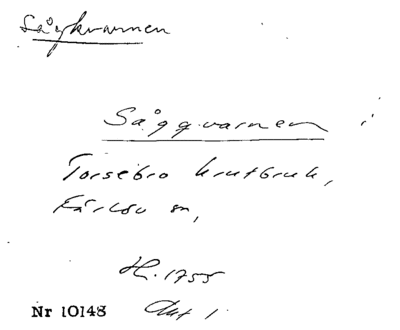 Sågkvarnen
Såggvarnen i
Torsebro krutbruk,
Färlöv sn,
H. 1755
Nr 10148 Akt 1